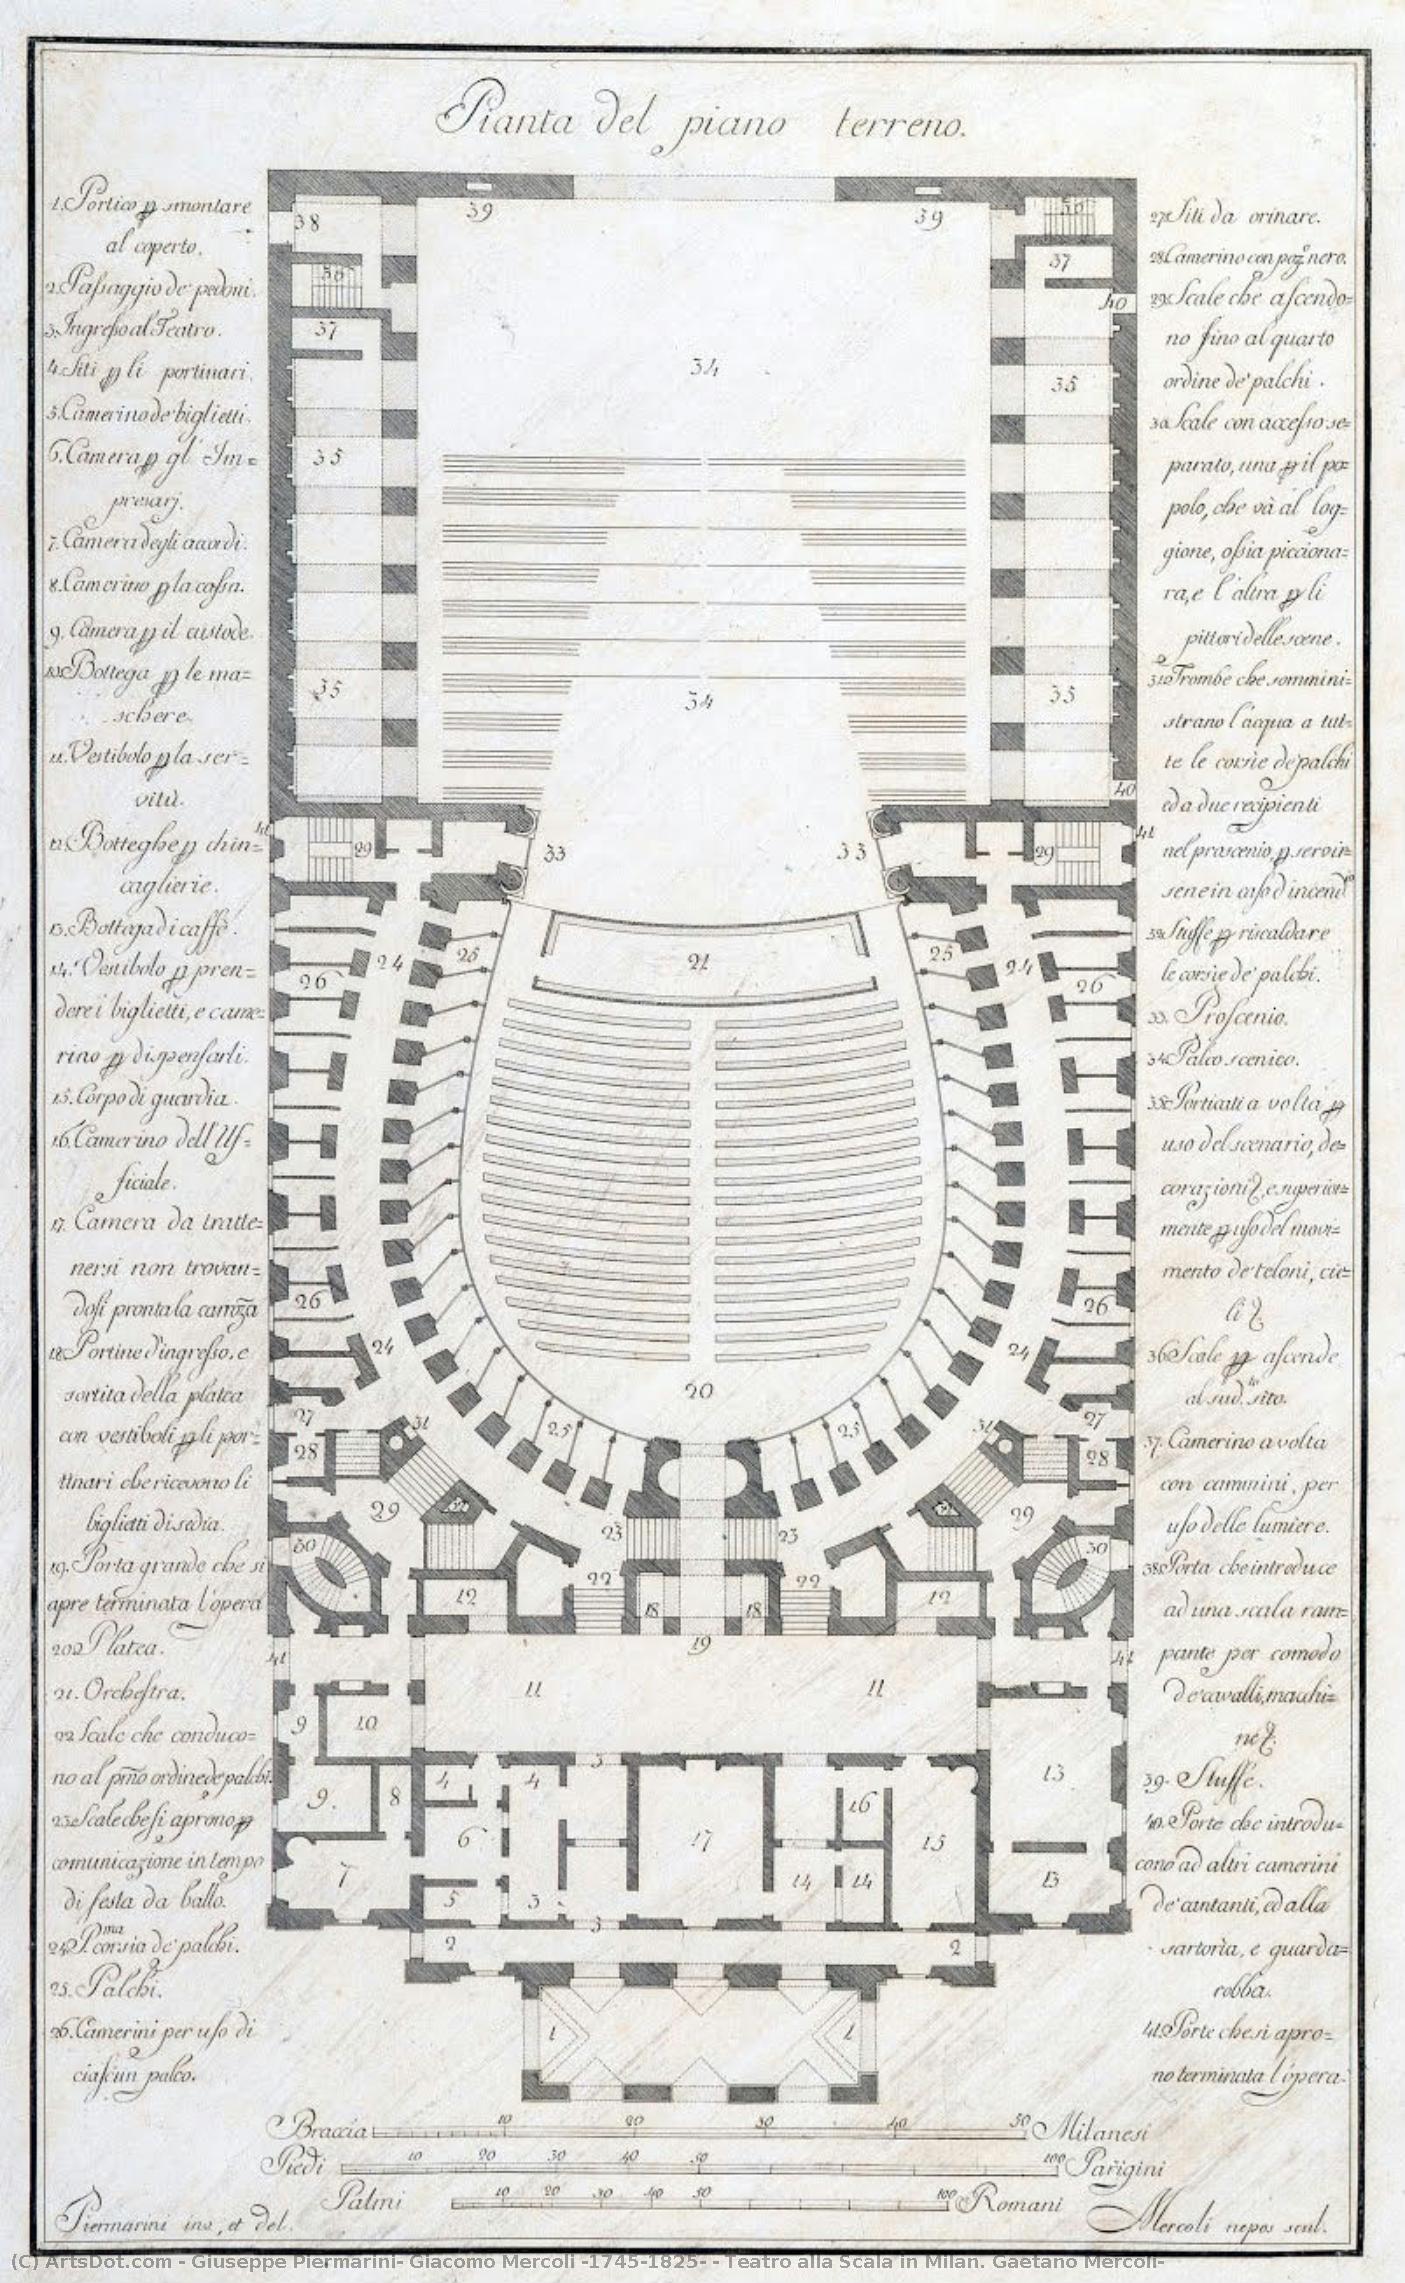 Pianta del piano terreno.
1. Portico p smontare
al coperto.
2. Passaggio de' pedoni.
3. Ingresso al Teatro.
4. Siti p li portinari.
5. Camerino de' biglietti.
6. Camera p gl' Im=
presarj.
7. Camera degli accordi.
8. Camerino p la cassa.
9. Camera p il custode.
10. Bottega p le ma=
schere.
11. Vestibolo p la ser=
vitù.
12. Botteghe p chin=
caglierie.
13. Bottega di caffè.
14. Vestibolo p pren=
dere i biglietti, e came=
rino p dispensarli.
15. Corpo di guardia.
16. Camerino dell' Uf=
ficiale.
17. Camera da tratte=
nersi non trovan=
dosi pronta la carrozza
18. Portine d'ingresso, e
sortita della platea
con vestiboli p li por=
tinari che ricevono li
biglietti di sedia.
19. Porta grande che si
apre terminata l'opera
20. Platea.
21. Orchestra.
22. Scale che conduco=
no al pmo ordine de palchi.
23. Scale che si aprono p
comunicazione in tempo
di festa da ballo.
24. Pma corsia de' palchi.
25. Palchi.
26. Camerini per uso di
ciascun palco.
27. Siti da orinare.
28. Camerino con pozo nero.
29. Scale che ascendo=
no fino al quarto
ordine de' palchi.
30. Scale con accesso se=
parato, una p il po=
polo, che và al log=
gione, ossia picciona=
ra, e l'altra p li
pittori delle scene.
31. Trombe che sommini=
strano l'acqua a tut=
te le corsie de palchi
ed a due recipienti
nel proscenio, p servir=
sene in caso d'incendo
32. Stuffe p riscaldare
le corsie de' palchi.
33. Proscenio.
34. Palco scenico.
35. Porticati a volta p
uso del scenario, de=
corazioni &, e superior=
mente p uso del movi=
mento de' teloni, cie=
li &.
36. Scale p ascende
al sud.to sito.
37. Camerino a volta
con cammini, per
uso delle lumiere.
38. Porta che introduce
ad una scala ram=
pante per comodo
de' cavalli, macchi=
ne &.
39. Stuffe.
40. Porte che introdu=
cono ad altri camerini
de' cantanti, ed alla
sartoria, e guarda=
robba.
41. Porte che si apro=
no terminata l'opera.
38 39 39 36
36 37 37 40
34 35 35
35 34 35 40
41 29 33 33 29 41
26 24 25 21 25 24 26
26 24 20 24 26
27 28 31 25 25 31 27 28
29 32 32 29
30 23 23 30
12 22 18 18 22 12
41 19 41
11 11
9 10
3
9 8 4 4 16 13
6 17 15
7 5 3 14 14 13
3
2 2
1 1
Braccia 10 20 30 40 50 Milanesi
Piedi 10 20 30 40 50 100 Parigini
Palmi 10 20 30 40 50 100 Romani
Piermarini inv, et del.
Mercoli nepos scul.
(C) ArtsDot.com - Giuseppe Piermarini- Giacomo Mercoli -1745-1825- - Teatro alla Scala in Milan. Gaetano Mercoli-